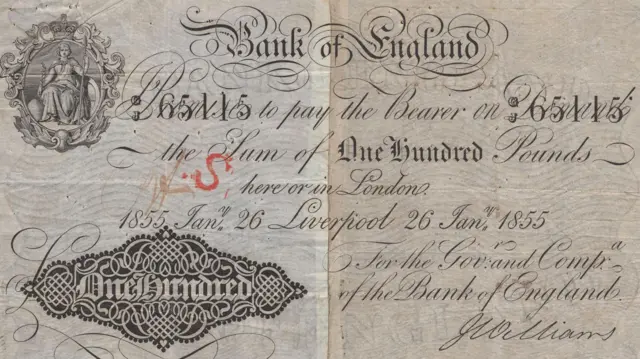 Bank of England
65115 Promise to pay the Bearer on Demand 65115
the Sum of One Hundred Pounds
S
here or in London.
1855 Jany. 26 Liverpool 26 Jany. 1855
For the Govr. and Compa. of the Bank of England.
One Hundred
JWilliams